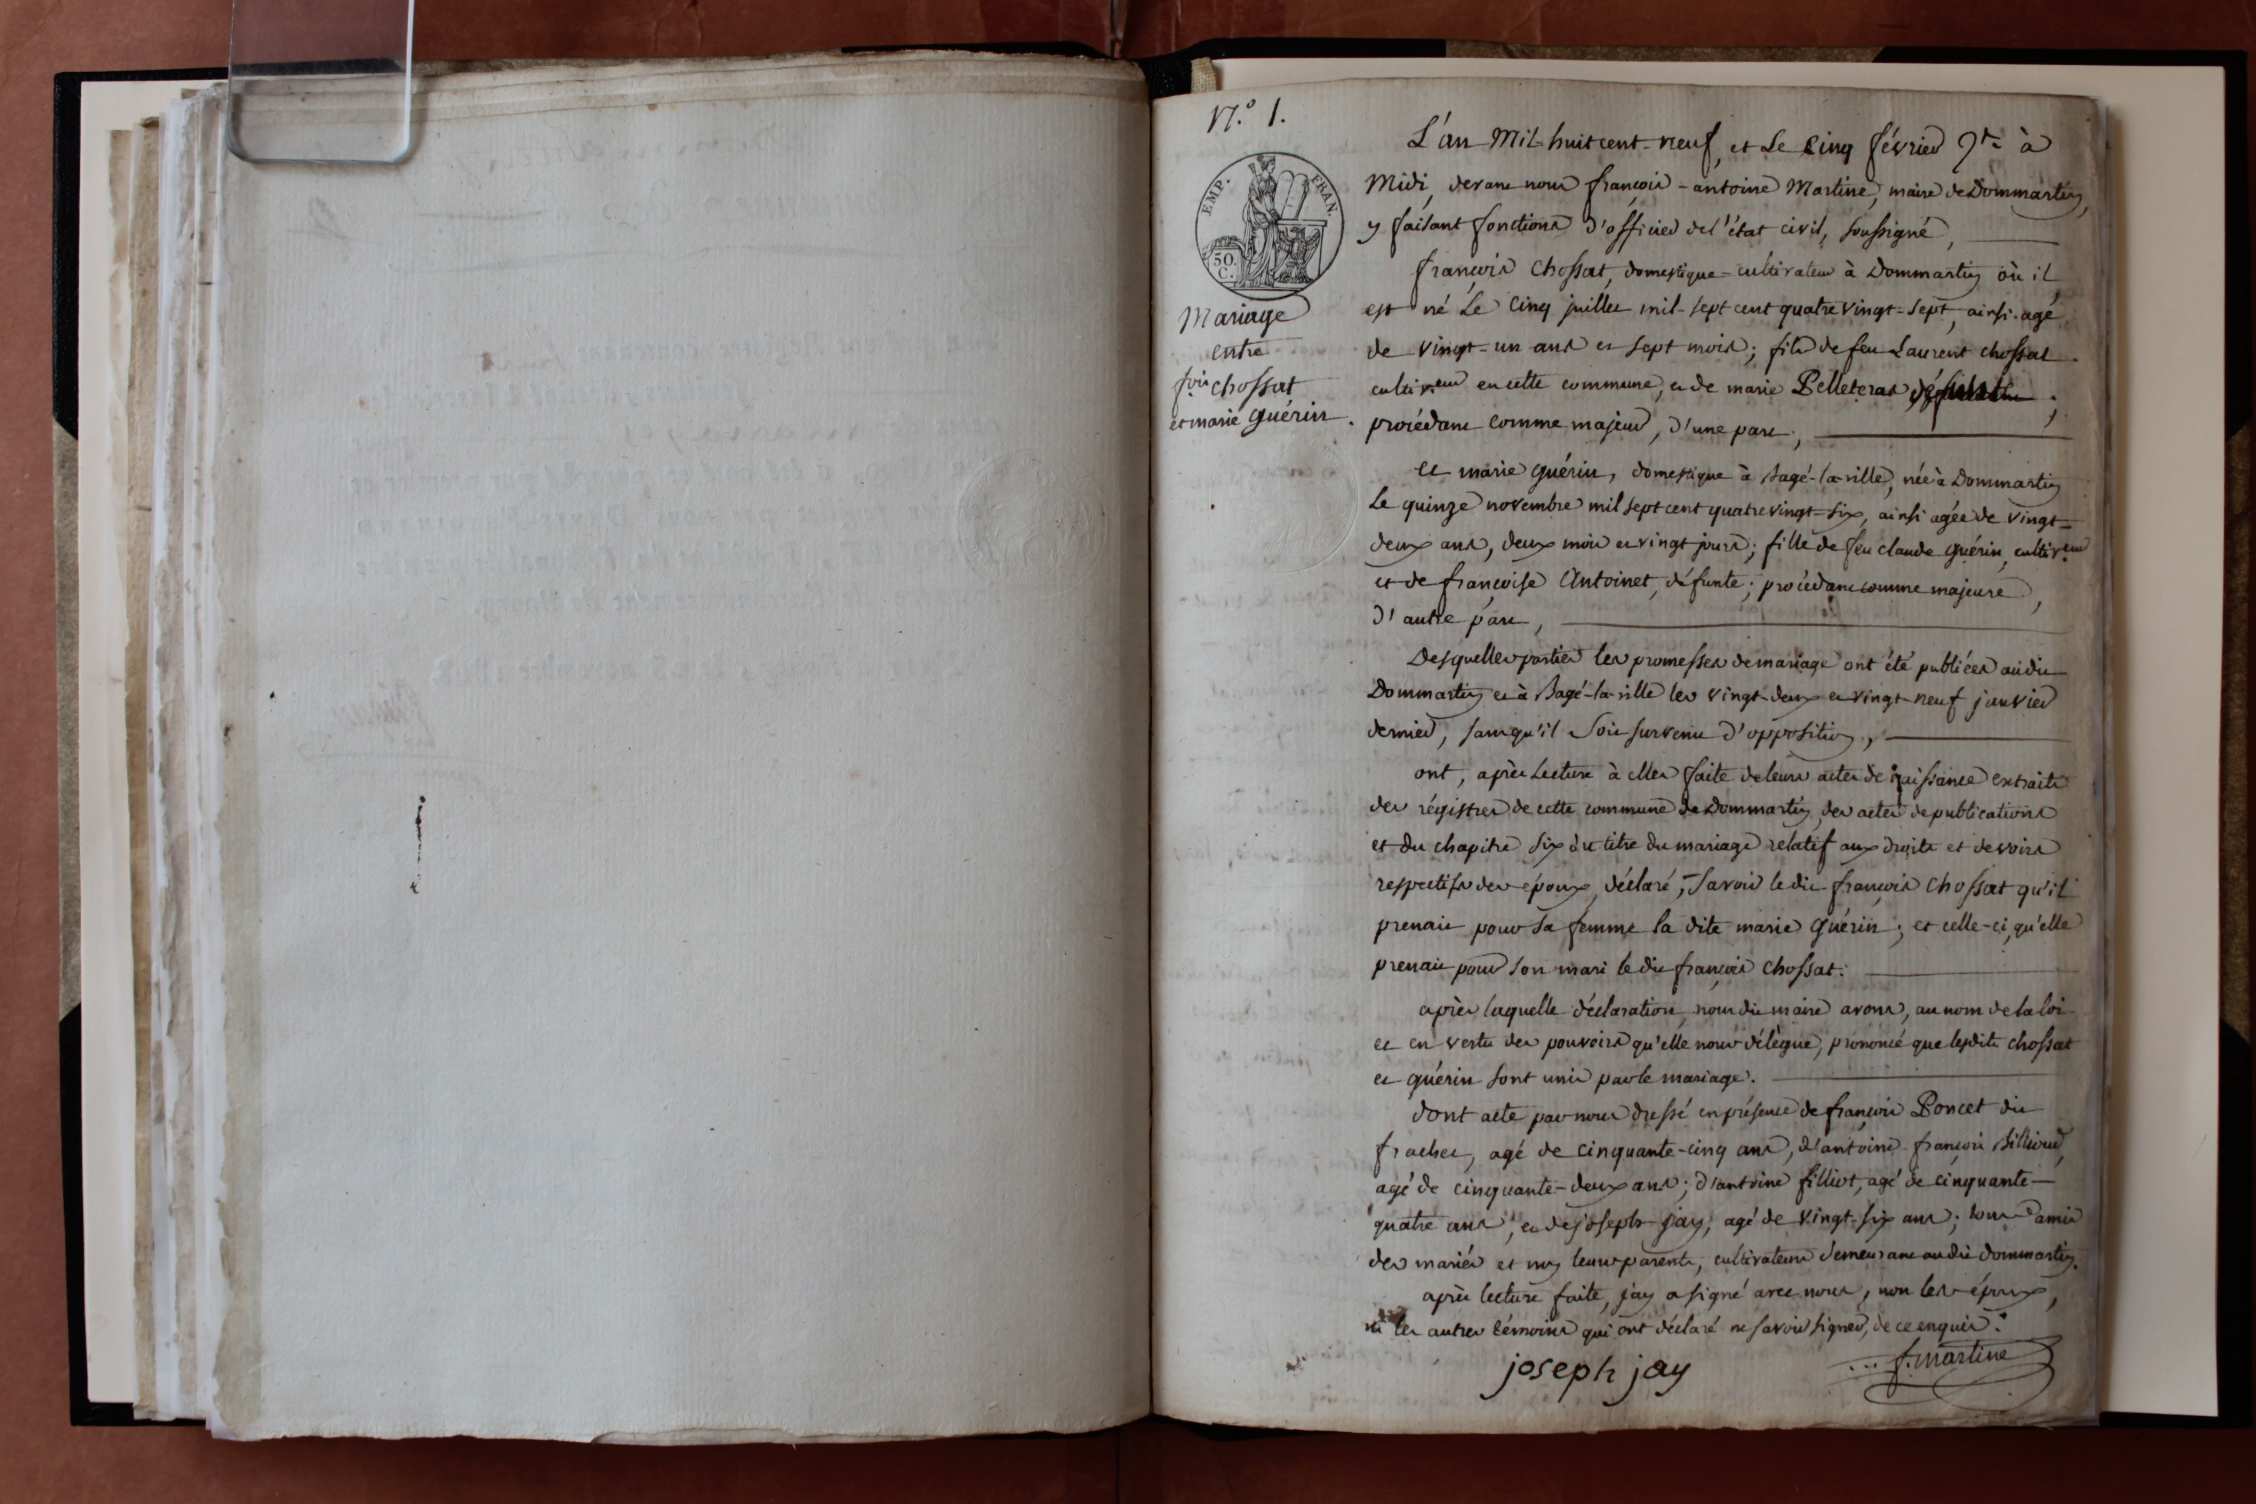 N.º 1.
EMP. FRAN.
50.
C.
Mariage
entre
fois chossat
et marie guérin.
L'an Mil-huit cent-neuf, et Le cinq février, à
Midi, devant nous françois-antoine Martine, maire de Dommartin,
y faisant fonctions d'officier de l'état civil, soussigné,
françois chossat, domestique-cultivateur à Dommartin où il
est né Le cinq juillet mil-sept cent quatre vingt-sept, ainsi agé
de vingt-un ans et sept mois; fils de feu Laurent chossat
cultiv.eur en cette commune, et de marie Pelleteras ;
procédant comme majeur, d'une part,
et marie guérin, domestique à Bagé-la-ville, née à Dommartin
Le quinze novembre mil sept cent quatre vingt-six, ainsi agée de vingt-
deux ans, deux mois et vingt jours; fille de feu claude guérin, cultiv.eur
et de françoise Antoinet, défunte; procédant comme majeure,
d'autre part,
Desquelles parties les promesses de mariage ont été publiées audit
Dommartin et à Bagé-la-ville les vingt-deux et vingt-neuf janvier
dernier, sans qu'il soit survenu d'opposition,
ont, après Lecture à elles faite de leurs actes de naissance extraits
des régistres de cette commune de Dommartin, des actes de publications
et du chapitre six du titre du mariage relatif aux droits et devoirs
respectifs des époux, déclaré, savoir ledit françois chossat qu'il
prenait pour sa femme la dite marie guérin; et celle-ci, qu'elle
prenait pour son mari ledit françois chossat.
après laquelle déclaration, nous dit maire avons, au nom de la loi
et en vertu des pouvoirs qu'elle nous délègue, prononcé que lesdits chossat
et guérin sont unis par le mariage.
dont acte par nous dressé en présence de françois Poncet dit
frachet, agé de cinquante-cinq ans, d'antoine-françois Billioud,
agé de cinquante-deux ans; d'antoine filliot, agé de cinquante-
quatre ans, et de joseph jay, agé de vingt-six ans; tous amis
des mariés et non leurs parents, cultivateurs demeurant audit dommartin.
après lecture faite, jay a signé avec nous, non les époux,
ni les autres témoins qui ont déclaré ne savoir signer, de ce enquis.
joseph jay
f. martine